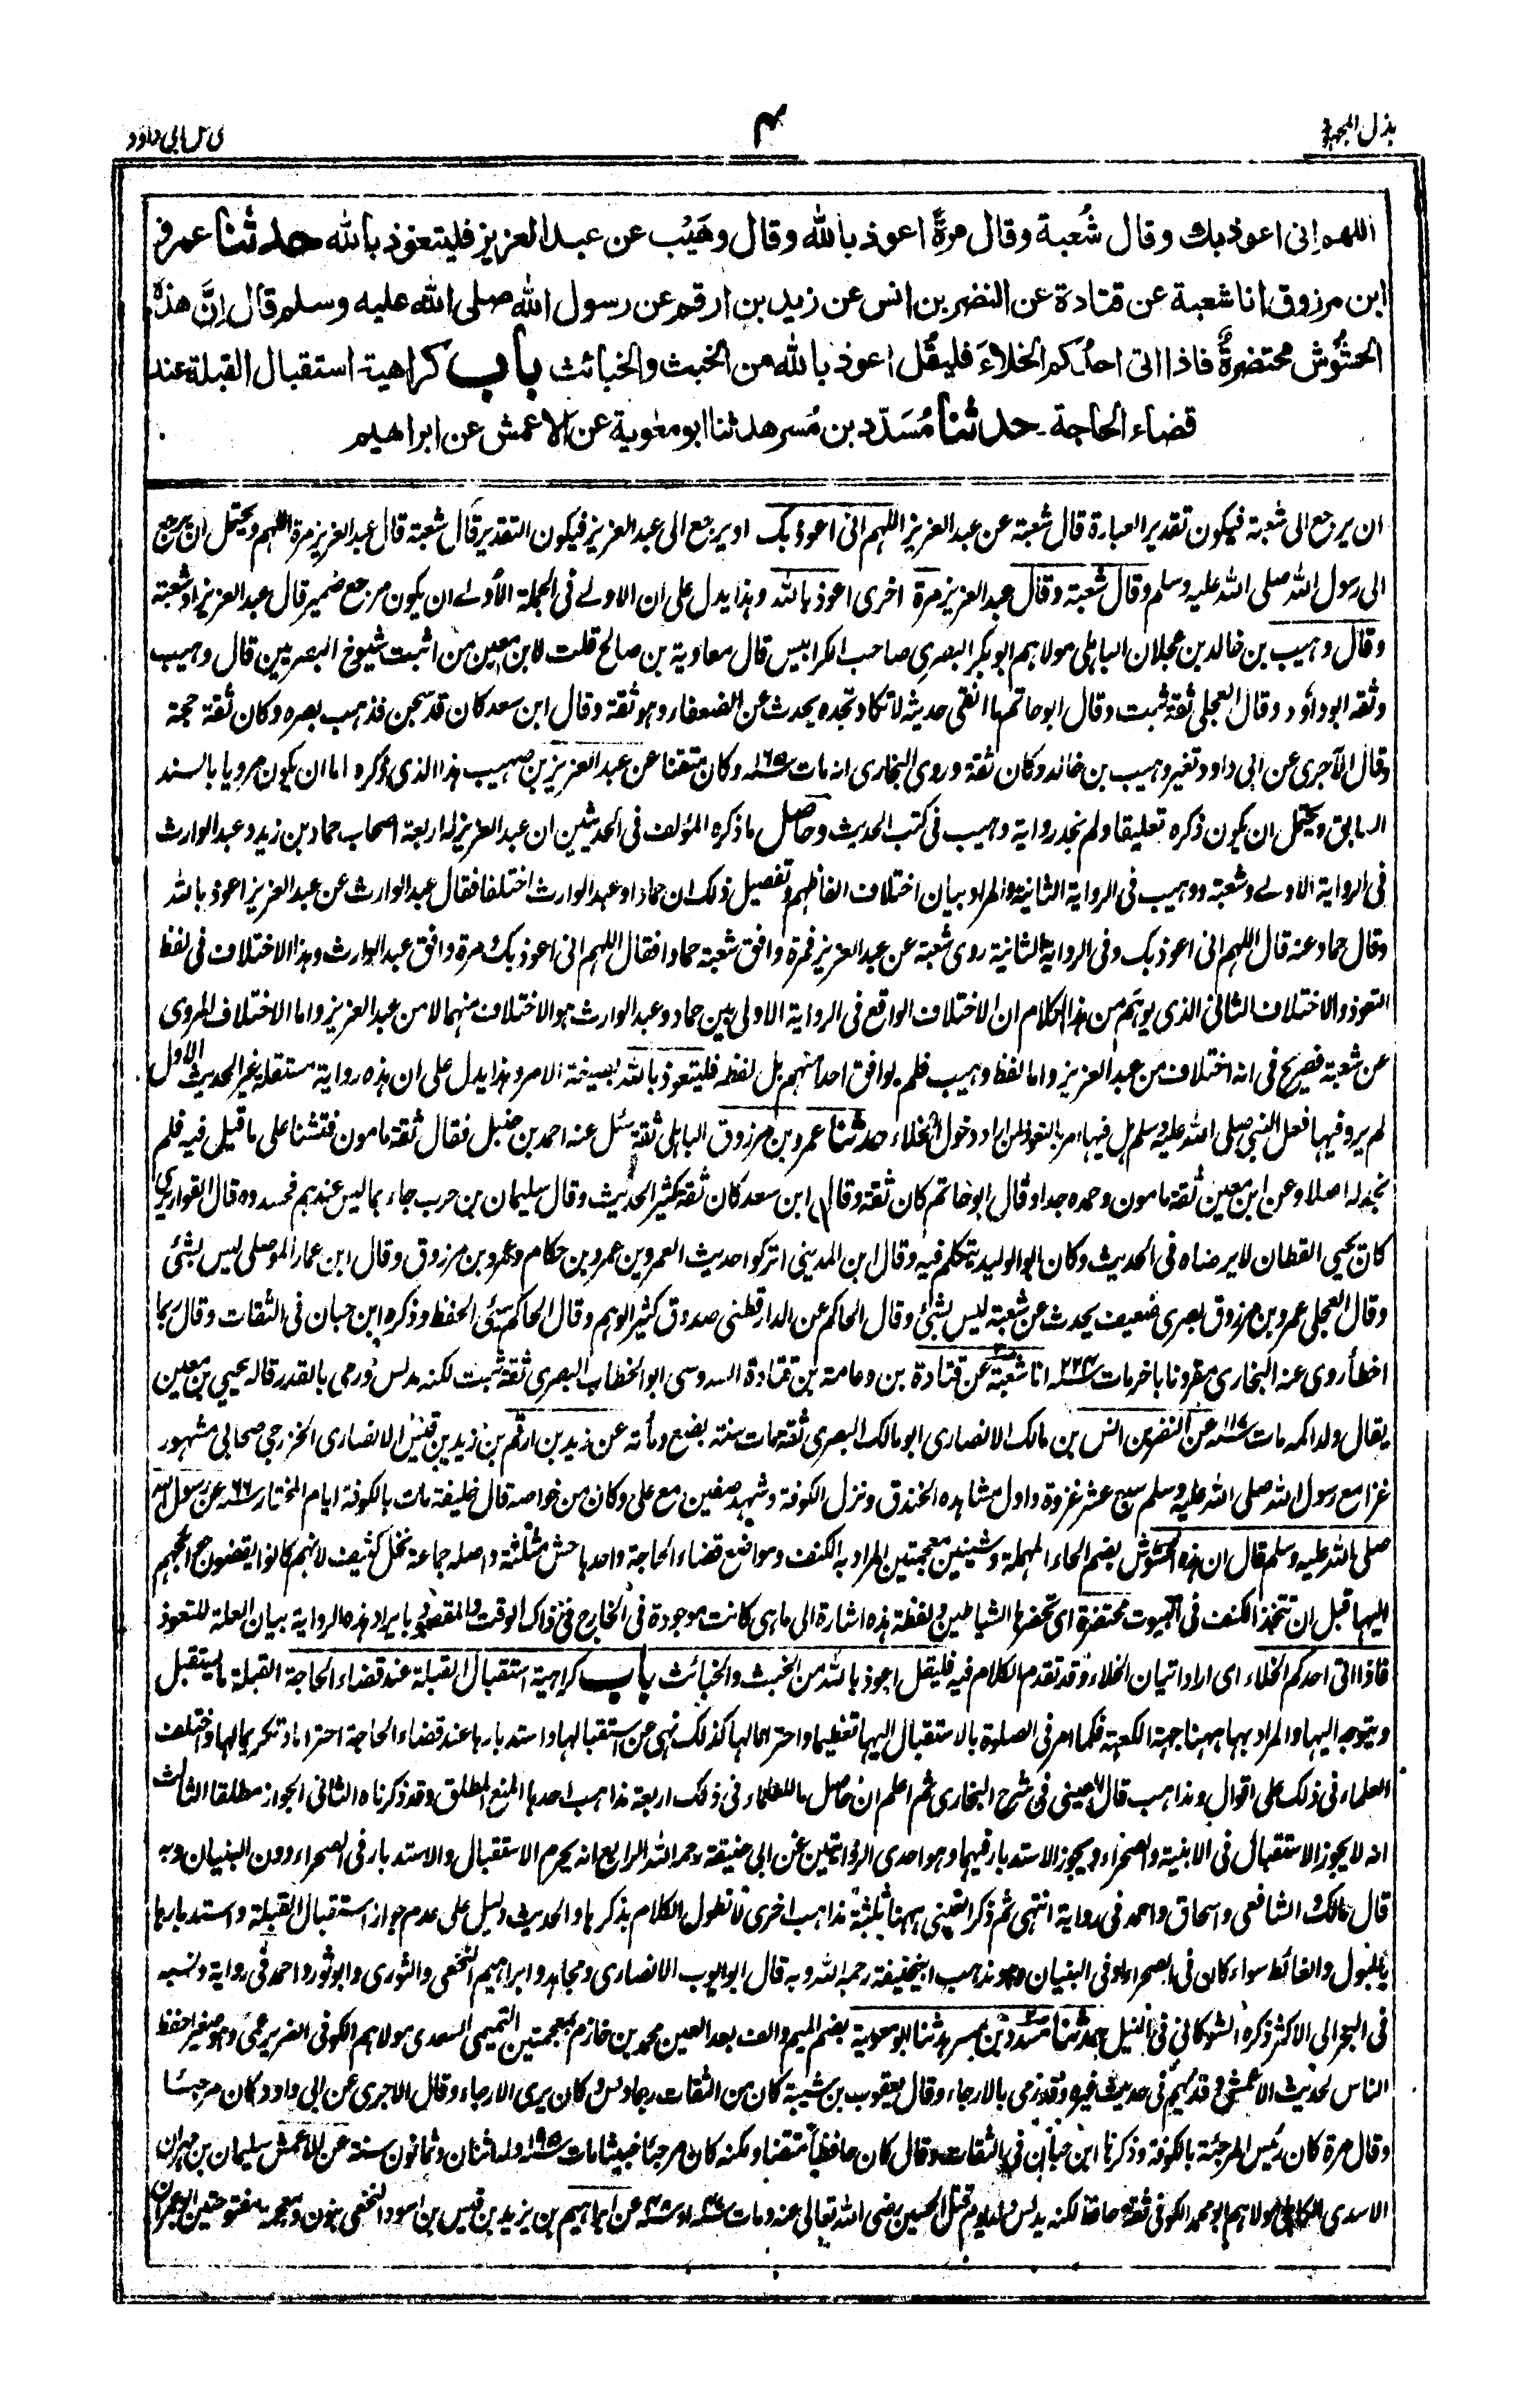 بذل المجهود
٤
فی حل ابی داود
اللهم انی اعوذ بك وقال شُعبة وقال مرةً اعوذ بالله وقال وهَیْب عن عبد العزیز فلیتعوذ بالله حدثنا عمرو
ابن مرزوق انا شعبة عن قتادة عن النضر بن انس عن زید بن ارقم عن رسول الله صلی الله علیه وسلم قال اِنَّ هذه
الحشُوش محتضرةٌ فاذا اتی احدُکم الخلاءَ فلیقُل اعوذ بالله من الخبث والخبائث باب کراهیة استقبال القبلة عند
قضاء الحاجة۔ حدثنا مُسَدّد بن مُسرهد ثنا ابو معٰویة عن الاعمش عن ابراهیم
ان یرجع الی شعبة فیکون تقدیر العبارة قال شعبة عن عبد العزیز اللهم انی اعوذ بک او یرجع الی عبد العزیز فیکون التقدیر قال شعبة قال عبد العزیز مرة اللهم ویحتمل ان یرجع
الی رسول الله صلی الله علیه وسلم وقال شعبة وقال عبد العزیز مرة اخری اعوذ بالله وهذا یدل علی ان الاولے فی الجملة الأولے ان یکون مرجع ضمیر قال عبد العزیز او شعبة
وقال وهیب بن خالد بن عجلان الباهلی مولاهم ابو بکر البصری صاحب الکرابیس قال معاویة بن صالح قلت لابن معین من اثبت شیوخ البصریین قال وهیب
وثقه ابو داؤد وقال العجلی ثقة ثبت وقال ابو حاتم ما انقی حدیثه لا تکاد تجده یحدث عن الضعفاء وهو ثقة وقال ابن سعد کان قد سجن فذهب بصره وکان ثقة حجة
وقال الآجری عن ابی داود تغیر وهیب بن خالد وکان ثقة وروی البخاری انه مات سنة ١٦٥ وکان متقنا عن عبد العزیز بن صهیب هذا الذی ذکره اما ان یکون مرویا بالسند
السابق ویحتمل ان یکون ذکره تعلیقا ولم نجد روایة وهیب فی کتب الحدیث وحاصل ما ذکره المؤلف فی الحدیثین ان عبد العزیز له اربعة اصحاب حماد بن زید وعبد الوارث
فی الروایة الاولے وشعبة ووهیب فی الروایة الثانیة والمراد بیان اختلاف الفاظهم وتفصیل ذلک ان حمادا وعبد الوارث اختلفا فقال عبد الوارث عن عبد العزیز اعوذ بالله
وقال حماد عنه قال اللهم انی اعوذ بک وفی الروایة الثانیة روی شعبة عن عبد العزیز فمرة وافق شعبة حمادا فقال اللهم انی اعوذ بک ومرة وافق عبد الوارث وهذا الاختلاف فی لفظ
التعوذ والاختلاف الثانی الذی یوهم من هذا الکلام ان الاختلاف الواقع فی الروایة الاولی بین حماد وعبد الوارث هو الاختلاف منهما لا من عبد العزیز واما الاختلاف المروی
عن شعبة فصریح فی انه اختلاف من عبد العزیز واما لفظ وهیب فلم یوافق احدا منهم بل لفظه فلیتعوذ بالله بصیغة الامر وهذا یدل علی ان هذه روایة مستقلة غیر الحدیث الاول
لم یرو فیها فعل النبی صلی الله علیه وسلم بل فیها امر بالتعوذ لمن اراد دخول الخلاء حدثنا عمرو بن مرزوق الباهلی ثقة سئل عنه احمد بن حنبل فقال ثقة مامون فتشنا علی ما قیل فیه فلم
نجد له اصلا وعن ابن معین ثقة مامون وحمده جدا وقال ابو حاتم کان ثقة وقال ابن سعد کان ثقة کثیر الحدیث وقال سلیمان بن حرب جاء بما لیس عندهم فحسدوه قال القواریری
کان یحیی القطان لا یرضاه فی الحدیث وکان ابو الولید یتکلم فیه وقال ابن المدینی اترکوا حدیث العمرین عمرو بن حکام وعمرو بن مرزوق وقال ابن عمار الموصلی لیس بشئی
وقال العجلی عمرو بن مرزوق بصری ضعیف یحدث عن شعبة لیس بشئی وقال الحاکم عن الدارقطنی صدوق کثیر الوهم وقال الحاکم سیئی الحفظ وذکره ابن حبان فی الثقات وقال ربما
اخطأ روی عنه البخاری مقرونا بآخر مات سنة ٢٢٤ انا شعبة عن قتادة بن دعامة بن قتادة السدوسی ابو الخطاب البصری ثقة ثبت لکنه مدلس ورمی بالقدر قاله یحیی بن معین
یقال ولد اکمه مات سنة ١١٧ عن النضر بن انس بن مالک الانصاری ابو مالک البصری ثقة مات سنة بضع ومأته عن زید بن ارقم بن زید بن قیس الانصاری الخزرجی صحابی مشهور
غزا مع رسول الله صلی الله علیه وسلم سبع عشر غزوة واول مشاهده الخندق ونزل الکوفة وشهد صفین مع علی وکان من خواصه قال خلیفة مات بالکوفة ایام المختار سنة ٦٦ عن رسول الله
صلی الله علیه وسلم قال ان هذه الحشوش بضم الحاء المهملة وشینین معجمتین المراد به الکنف ومواضع قضاء الحاجة واحدها حش مثلثة واصله جماعة نخل کثیف لانهم کانوا یقضون حوائجهم
الیها قبل ان تتخذ الکنف فی البیوت محتضرة ای تحضرها الشیاطین ولفظة هذه اشارة الی ما هی کانت موجودة فی الخارج فی ذاک الوقت والمقصود بایراد هذه الروایة بیان العلة للتعوذ
فاذا اتی احدکم الخلاء ای اراد اتیان الخلاء وقد تقدم الکلام فیه فلیقل اعوذ بالله من الخبث والخبائث باب کراهیة استقبال القبلة عند قضاء الحاجة القبلة ما یستقبل
ویتوجه الیها والمراد بها ههنا جهة الکعبة فکما امر فی الصلوة بالاستقبال الیها تعظیما واحتراما لها کذلک نهی عن استقبالها واستدبارها عند قضاء الحاجة احتراما وتکریما لها واختلف
العلماء فی ذلک علی اقوال ومذاهب قال العینی فی شرح البخاری ثم اعلم ان حاصل ما للعلماء فی ذلک اربعة مذاهب احدها المنع المطلق وقد ذکرناه الثانی الجواز مطلقا الثالث
انه لا یجوز الاستقبال فی الابنیة والصحراء ویجوز الاستدبار فیهما وهو احدی الروایتین عن ابی حنیفة رحمه الله الرابع انه یحرم الاستقبال والاستدبار فی الصحراء دون البنیان وبه
قال مالک والشافعی واسحاق واحمد فی روایة انتهی ثم ذکر العینی ههنا ثلثة مذاهب اخری لا نطول الکلام بذکرها والحدیث دلیل علی عدم جواز استقبال القبلة واستدبارها
بالبول والغائط سواء کان فی الصحراء او فی البنیان وهو مذهب ابیحنیفة رحمه الله وبه قال ابو ایوب الانصاری ومجاهد وابراهیم النخعی والثوری وابو ثور واحمد فی روایة ونسبه
فی البحر الی الاکثر ذکره الشوکانی فی النیل حدثنا مسدد بن مسرهد ثنا ابو معویة بضم المیم والف بعد العین محمد بن خازم بمعجمتین التمیمی السعدی مولاهم الکوفی الضریر عمی وهو صغیر احفظ
الناس لحدیث الاعمش وقد یهم فی حدیث غیره وقد رمی بالارجاء وقال یعقوب بن شیبة کان من الثقات ربما دلس وکان یری الارجاء وقال الاجری عن ابی داود کان مرجئا
وقال مرة کان رئیس المرجئة بالکوفة وذکره ابن حبان فی الثقات وقال کان حافظا متقنا ولکنه کان مرجئا خبیثا مات سنة ١٩٥ وله اثنان وثمانون سنة عن الاعمش سلیمان بن مهران
الاسدی الکاهلی مولاهم ابو محمد الکوفی ثقة حافظ لکنه یدلس ولد یوم قتل الحسین رضی الله تعالی عنه ومات سنة ١٤٧ او سنة ١٤٨ عن ابراهیم بن یزید بن قیس بن اسود النخعی بنون ومعجمة مفتوحتین ابو عمران